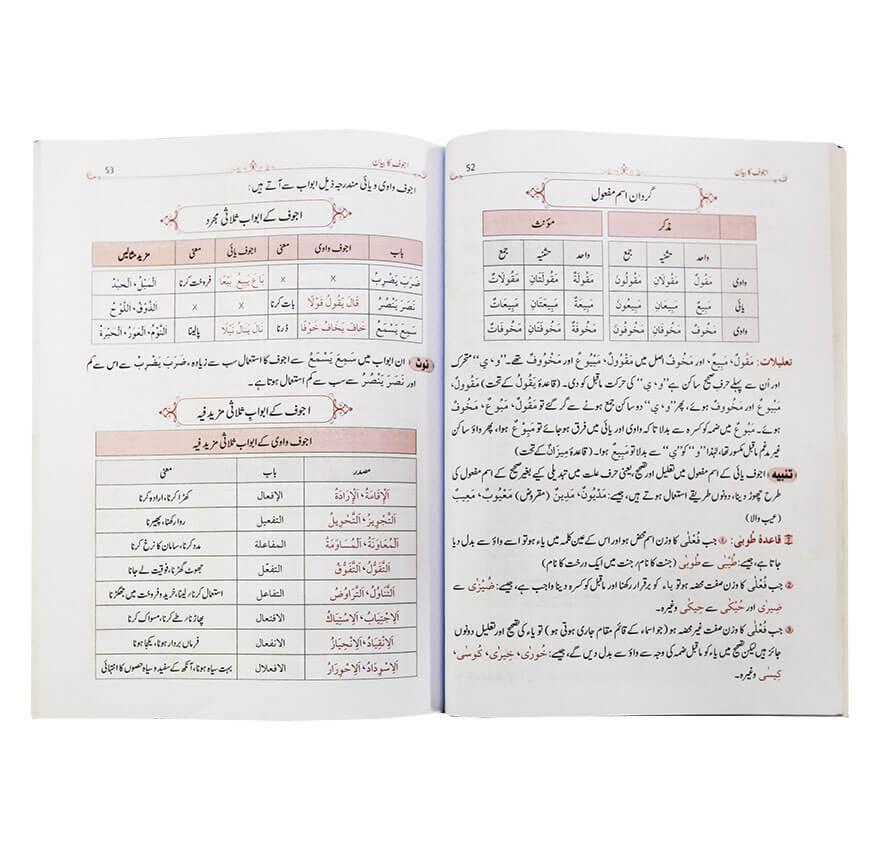 اجوف کا بیان 52
گردان اسم مفعول
مذکر مؤنث
واحد تثنیہ جمع واحد تثنیہ جمع
واوی مَقُولٌ مَقُولَانِ مَقُولُونَ مَقُولَةٌ مَقُولَتَانِ مَقُولَاتٌ
یائی مَبِيعٌ مَبِيعَانِ مَبِيعُونَ مَبِيعَةٌ مَبِيعَتَانِ مَبِيعَاتٌ
واوی مَخُوفٌ مَخُوفَانِ مَخُوفُونَ مَخُوفَةٌ مَخُوفَتَانِ مَخُوفَاتٌ
تعلیلات: مَقُولٌ، مَبِيعٌ، اور مَخُوفٌ اصل میں مَقْوُولٌ، مَبْيُوعٌ اور مَخْوُوفٌ تھے۔ ”و، ي“ متحرک
اور اُن سے پہلے حرفِ صحیح ساکن ہے ”و، ي“ کی حرکت ماقبل کو دی۔ (قاعدۂ يَقُولُ کے تحت) مَقُوولٌ،
مَبُيوعٌ اور مَخُووفٌ ہوئے، پھر ”و، ي“ دو ساکن جمع ہونے سے گر گئے تو مَقُولٌ، مَبُوعٌ، مَخُوفٌ
ہوئے۔ مَبُوعٌ میں ضمہ کو کسرہ سے بدلا تاکہ واوی اور یائی میں فرق ہو جائے تو مَبِوْعٌ ہوا، پھر واؤ ساکن
غیر مدغم ماقبل مکسور تھا، لہٰذا ”و“ کو ”ي“ سے بدلا تو مَبِيعٌ ہوا۔ (قاعدۂ مِيزَانٌ کے تحت)
تنبیہ اجوف یائی کے اسم مفعول میں تعلیل اور تصحیح، یعنی حرف علت میں تبدیلی کیے بغیر صحیح کے اسم مفعول کی
طرح چھوڑ دینا، دونوں طریقے استعمال ہوتے ہیں، جیسے: مَدْيُونٌ، مَدِينٌ (مقروض) مَعْيُوبٌ، مَعِيبٌ
(عیب والا)
قاعدۂ طُوبٰی: ① جب فُعْلٰی کا وزن اسم محض ہو اور اس کے عین کلمہ میں یاء ہو تو اسے واؤ سے بدل دیا
جاتا ہے، جیسے: طُيْبٰی سے طُوبٰی (جنت کا نام/ جنت میں ایک درخت کا نام)
② جب فُعْلٰی کا وزن صفت محضہ ہو تو یاء کو برقرار رکھنا اور ماقبل کو کسرہ دینا واجب ہے، جیسے: ضُيْزٰی سے
ضِيزٰی اور حُيْكٰی سے حِيكٰی وغیرہ۔
③ جب فُعْلٰی کا وزن صفت غیر محضہ ہو (جو اسماء کے قائم مقام جاری ہوتی ہو) تو یاء کی تصحیح اور تعلیل دونوں
جائز ہیں لیکن تصحیح میں یاء کو ماقبل ضمہ کی وجہ سے واؤ سے بدل دیں گے، جیسے: خُورٰی، خِيرٰی، كُوسٰی،
كِيسٰی وغیرہ۔
اجوف کا بیان 53
اجوف واوی و یائی مندرجہ ذیل ابواب سے آتے ہیں:
اجوف کے ابواب ثلاثی مجرد
باب اجوف واوی معنی اجوف یائی معنی مزید مثالیں
ضَرَبَ يَضْرِبُ x x بَاعَ يَبِيعُ بَيْعًا فروخت کرنا اَلْمَيْلُ، اَلْحَيْدُ
نَصَرَ يَنْصُرُ قَالَ يَقُولُ قَوْلًا بات کرنا x x اَلذَّوْقُ، اَللَّوْحُ
سَمِعَ يَسْمَعُ خَافَ يَخَافُ خَوْفًا ڈرنا نَالَ يَنَالُ نَيْلًا پالینا اَلنَّوْمُ، اَلْعَوَرُ، اَلْحَيْرَةُ
نوٹ ان ابواب میں سَمِعَ يَسْمَعُ سے اجوف کا استعمال سب سے زیادہ، ضَرَبَ يَضْرِبُ سے اس سے کم
اور نَصَرَ يَنْصُرُ سے سب سے کم استعمال ہوتا ہے۔
اجوف کے ابوابِ ثلاثی مزید فیہ
اجوف واوی کے ابواب ثلاثی مزید فیہ
مصدر باب معنی
اَلْإِقَامَةُ، اَلْإِرَادَةُ الإفعال کھڑا کرنا، ارادہ کرنا
اَلتَّجْوِيزُ، اَلتَّحْوِيلُ التفعیل روا رکھنا، پھیرنا
اَلْمُعَاوَنَةُ، اَلْمُسَاوَمَةُ المفاعلة مدد کرنا، سامان کا نرخ کرنا
اَلتَّقَوُّلُ، اَلتَّفَوُّقُ التفعّل جھوٹ گھڑنا، فوقیت لے جانا
اَلتَّنَاوُلُ، اَلتَّرَاوُضُ التفاعل استعمال کرنا/لینا، خرید و فروخت میں جھگڑنا
اَلِاجْتِيَابُ، اَلِاسْتِيَاكُ الافتعال پھاڑنا/طے کرنا، مسواک کرنا
اَلِانْقِيَادُ، اَلِانْحِيَازُ الانفعال فرماں بردار ہونا، یکجا ہونا
اَلِاسْوِدَادُ، اَلِاحْوِرَارُ الافعلال بہت سیاہ ہونا، آنکھ کے سفید و سیاہ حصوں کا انتہائی